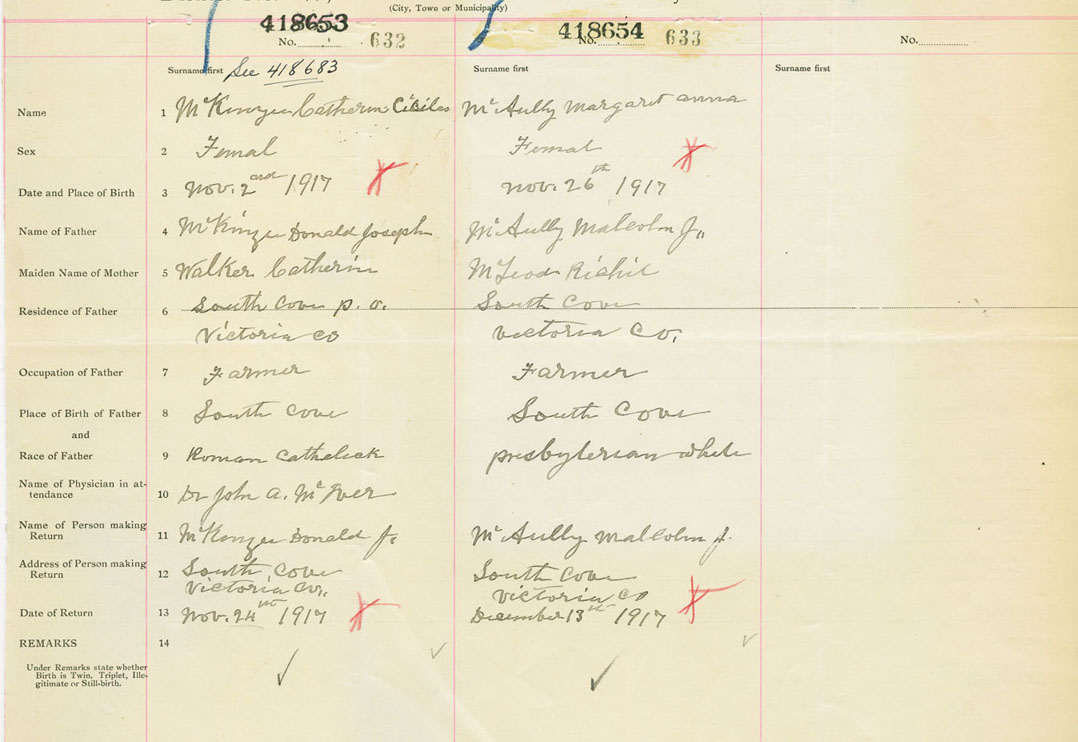 (City, Town or Municipality)
418653
No. 632
418654
No. 633
No.
Surname first See 418683
Surname first
Surname first
Name 1 McKinzie Catherin Ciciles McAully Margaret anna
Sex 2 Femal Femal
Date and Place of Birth 3 Nov. 2nd 1917 Nov. 26th 1917
Name of Father 4 McKinzie Donald Joseph McAully Malcolm J.,
Maiden Name of Mother 5 Walker Catherin McLeod
Residence of Father 6 South Cove p. o. South Cove
Victoria Co Victoria Co,
Occupation of Father 7 Farmer Farmer
Place of Birth of Father 8 South Cove South Cove
and
Race of Father 9 Roman Catholick presbyterian white
Name of Physician in at-
tendance 10 Dr John A. McIver
Name of Person making
Return 11 McKinzie Donald J. McAully Malcolm J.
Address of Person making
Return 12 South Cove South Cove
Victoria Co., Victoria CO
Date of Return 13 Nov. 24th 1917 December 13th 1917
REMARKS 14
Under Remarks state whether
Birth is Twin, Triplet, Ille-
gitimate or Still-birth.